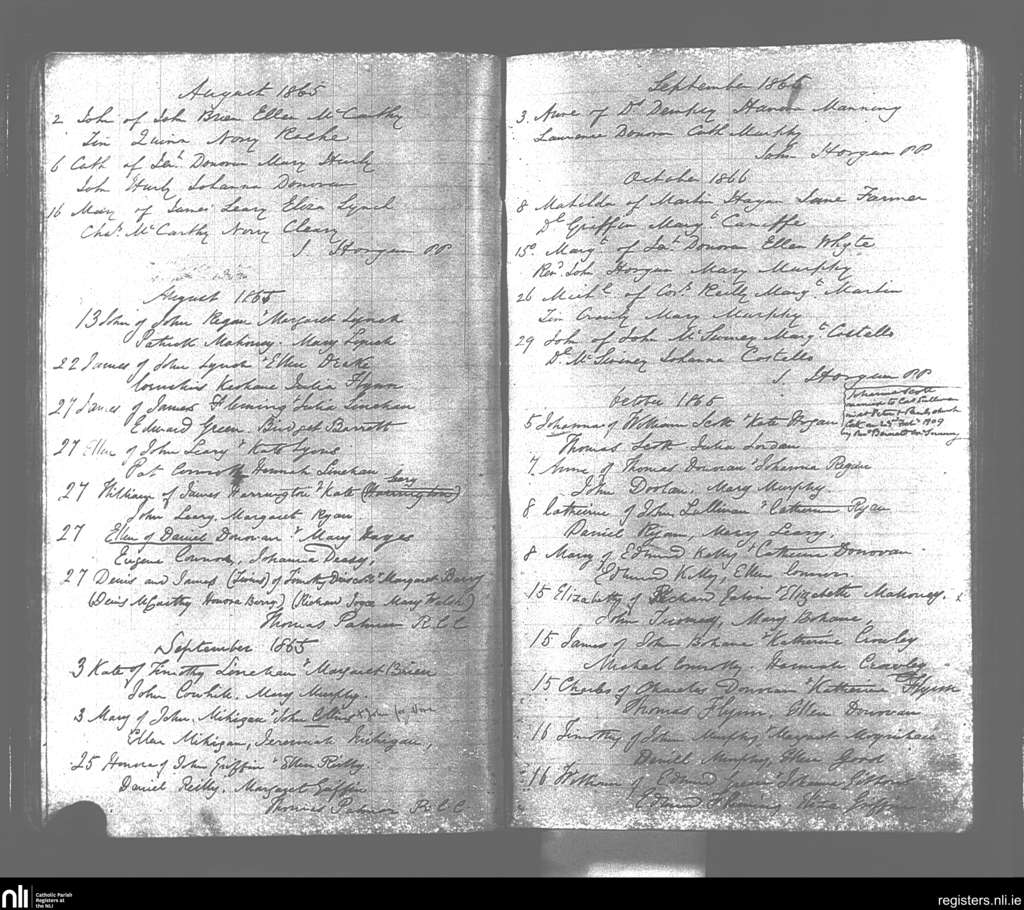 August 1865
2 John of John Brien Ellen McCarthy
Tim Quinn Nory Roche
6 Cath of Jer. Donovan Mary Hurly
John Hurly Johanna Donovan
16 Mary of James Leary Eliza Lynch
Chas. McCarthy Nory Cleary
J. Horgan PP
August 1865
13 John of John Regan & Margaret Lynch
Patrick Mahoney. Mary Lynch
22 James of John Lynch & Ellen Drake
Cornelius Keohane Julia Flynn
27 James of James Fleming & Julia Linehan
Edward Green. Bridget Barrett
27 Ellen of John Leary & Kate Lyons
Pat Connolly Hannah Linehan
Leary
27 William of James Harrington & Kate (Harrington)
John Leary. Margaret Ryan.
27 Ellen of Daniel Donovan & Mary Hayes
Eugene Connor, Johanna Deasy,
27 Denis and James (Twins) of Timothy Driscoll & Margaret Barry
(Denis McCarthy Honora Barry) (Richard Joyce Mary Walsh)
Thomas Palmer R.C.C
September 1865
3 Kate of Timothy Linehan & Margaret Brien
John Cowhile. Mary Murphy.
3 Mary of John Mihigan & John
Ellen Mihigan, Jeremiah Mihigan,
25 Honora of John Griffin & Ellen Reilly
Daniel Reilly. Margaret Griffin
Thomas Palmer R.C.C
September 1866
3. Anne of Dl Dempsey Hanora Manning
Laurence Donovan Cath Murphy
John Horgan PP.
October 1866
8 Matilda of Martin Hagan Jane Farmer
Dl Griffin Margt Canniffe
15 Margt of Jer. Donovan Ellen Whyte
Revd. John Horgan Mary Murphy
26 Michl of Cors. Reilly Margt. Martin
Tim Mary Murphy
29 John of John McSwiney Margt Costello
Dl McSwiney Johanna Costello
J. Horgan PP
October 1865
Johanna Scott
married to
Peter & Paul's church
Cork on 25th Feb. 1909
by Revd
5 Johanna of William Scott & Kate Hogan
Thomas Scott Julia Jordan
7. Anne of Thomas Donovan & Johanna Regan
John Doolan, Mary Murphy.
8 Catherine of John Sullivan & Catherine Ryan
Daniel Ryan, Mary Leary,
8 Mary of Edmund Kelly & Catherine Donovan.
Edmund Kelly, Ellen Connor.
15 Elizabeth of Richard Eaton & Elizabeth Mahoney.
John Twomey, Mary Bohane,
15 James of John Bohane & Katherine Crowley
Michael Connolly. Hannah Crowley
15 Charles of Charles Donovan & Katherine Flynn
Thomas Flynn. Ellen Donovan
16 Timothy of John Murphy & Margaret Moynihan
Daniel Murphy, Ellen Good
16 William of Edmund & Johanna
Edmund Fleming Eliza Griffin
nli Catholic Parish
Registers at
the NLI
registers.nli.ie